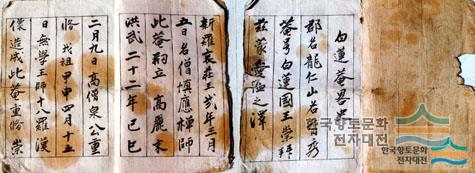 白蓮菴畧史
郡名龍仁山名香秀
菴号白蓮國王崇拜
茲蒙愛恤之澤
新羅哀莊王弐年三月
五日名僧愼應禪師
此菴刱立高麗末
洪武二十二年己巳
二月九日高僧泉公重
修我祖甲申四月十五
日無學王師十八羅漢
像造成此菴重修崇
한국향토문화
전자대전
한국향토문화
전자대전